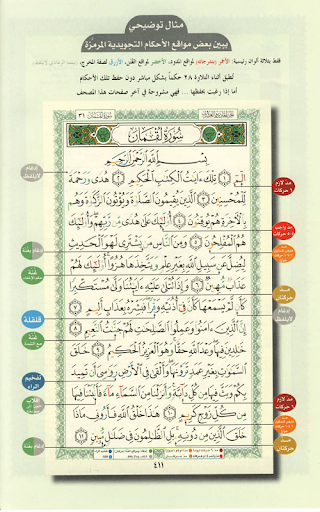 مثال توضيحي
يبين بعض مواقع الأحكام التجويدية المرمزة
فقط بثلاثة ألوان رئيسية: الأحمر (بتدرجاته) لمواقع المدود، الأخضر لمواقع الغنن، الأزرق لصفة المخرج،
تطبق أثناء التلاوة ٢٨ حكماً بشكل مباشر دون حفظ تلك الأحكام
أما إذا رغبت بحفظها ... فهي مشروحة في آخر صفحات هذا المصحف
٣١
سُورَةُ لُقْمَانَ
بِسْمِ اللَّهِ الرَّحْمَٰنِ الرَّحِيمِ
الٓمٓ ١ تِلْكَ ءَايَٰتُ ٱلْكِتَٰبِ ٱلْحَكِيمِ ٢ هُدًى وَرَحْمَةً
لِّلْمُحْسِنِينَ ٣ ٱلَّذِينَ يُقِيمُونَ ٱلصَّلَوٰةَ وَيُؤْتُونَ ٱلزَّكَوٰةَ وَهُم
بِٱلْءَاخِرَةِ هُمْ يُوقِنُونَ ٤ أُو۟لَٰٓئِكَ عَلَىٰ هُدًى مِّن رَّبِّهِمْ وَأُو۟لَٰٓئِكَ
هُمُ ٱلْمُفْلِحُونَ ٥ وَمِنَ ٱلنَّاسِ مَن يَشْتَرِى لَهْوَ ٱلْحَدِيثِ
لِيُضِلَّ عَن سَبِيلِ ٱللَّهِ بِغَيْرِ عِلْمٍ وَيَتَّخِذَهَا هُزُوًا أُو۟لَٰٓئِكَ لَهُمْ
عَذَابٌ مُّهِينٌ ٦ وَإِذَا تُتْلَىٰ عَلَيْهِ ءَايَٰتُنَا وَلَّىٰ مُسْتَكْبِرًا
كَأَن لَّمْ يَسْمَعْهَا كَأَنَّ فِىٓ أُذُنَيْهِ وَقْرًا فَبَشِّرْهُ بِعَذَابٍ أَلِيمٍ ٧
إِنَّ ٱلَّذِينَ ءَامَنُوا۟ وَعَمِلُوا۟ ٱلصَّٰلِحَٰتِ لَهُمْ جَنَّٰتُ ٱلنَّعِيمِ ٨
خَٰلِدِينَ فِيهَا وَعْدَ ٱللَّهِ حَقًّا وَهُوَ ٱلْعَزِيزُ ٱلْحَكِيمُ ٩ خَلَقَ
ٱلسَّمَٰوَٰتِ بِغَيْرِ عَمَدٍ تَرَوْنَهَا وَأَلْقَىٰ فِى ٱلْأَرْضِ رَوَٰسِىَ أَن تَمِيدَ
بِكُمْ وَبَثَّ فِيهَا مِن كُلِّ دَآبَّةٍ وَأَنزَلْنَا مِنَ ٱلسَّمَآءِ مَآءً فَأَنۢبَتْنَا فِيهَا
مِن كُلِّ زَوْجٍ كَرِيمٍ ١٠ هَٰذَا خَلْقُ ٱللَّهِ فَأَرُونِى مَاذَا
خَلَقَ ٱلَّذِينَ مِن دُونِهِۦ بَلِ ٱلظَّٰلِمُونَ فِى ضَلَٰلٍ مُّبِينٍ ١١
٤١١
إدغام
لا يلفظ
إدغام بغنة
غنة
قلقلة
غنة
تفخيم
الراء
إقلاب
إدغام بغنة
مد لازم
٦ حركات
مد واجب
مد
حركتان
إدغام
لا يلفظ
مد لازم
٦ حركات
مد
حركتان